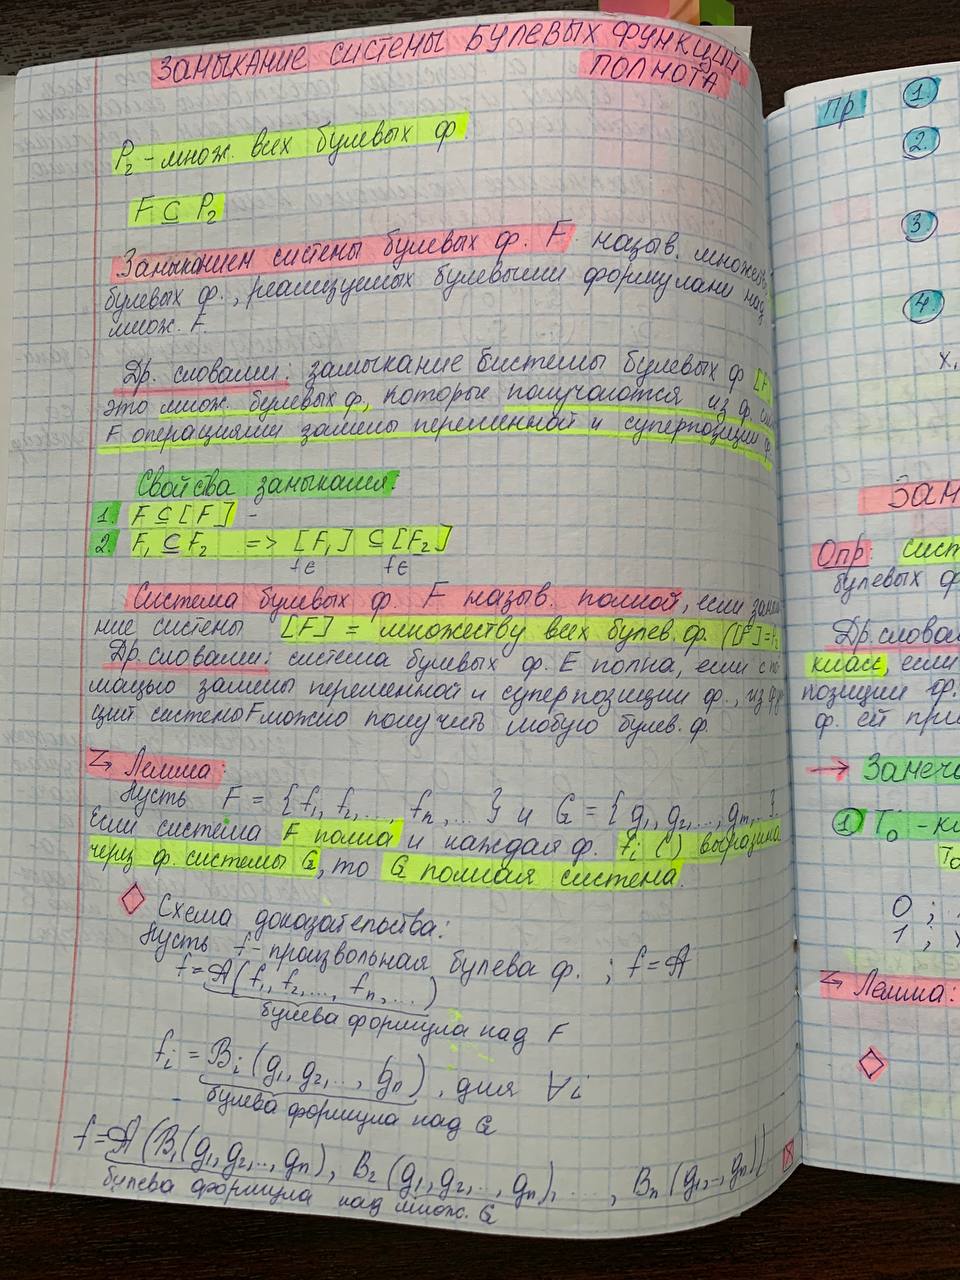 ЗАМЫКАНИЕ СИСТЕМЫ БУЛЕВЫХ ФУНКЦИЙ
ПОЛНОТА
P₂ - множ. всех булевых ф.
F ⊆ P₂
Замыканием системы булевых ф. F назыв. множеств
булевых ф., реализуемых булевыми формулами над
множ. F.
Др. словами: замыкание системы булевых ф [F]
это множ. булевых ф, которые получаются из ф.
F операциями замены переменной и суперпозиции ф.
Свойства замыкания:
1. F ⊆ [F] -
2. F₁ ⊆ F₂ => [F₁] ⊆ [F₂]
f∈ f∈
Система булевых ф. F назыв. полной, если замы
ние системы [F] = множеству всех булев. ф. ([F]=P₂
Др. словами: система булевых ф. F полна, если с по
мощью замены переменной и суперпозиции ф., из фун
ций системы F можно получить любую булев. ф.
Лемма:
Пусть F = {f₁, f₂,..., fₙ,... } и G = {g₁, g₂,..., gₘ,..}
Если система F полна и каждая ф. fᵢ ( ) выразима
через ф. системы G, то G полная система.
Схема доказательства:
Пусть f - произвольная булева ф. ; f = A
f = A(f₁, f₂,..., fₙ,...)
булева формула над F
fᵢ = Bᵢ (g₁, g₂,.., gₙ), для ∀i
булева формула над G
f = A(B₁(g₁, g₂,.., gₙ), B₂(g₁, g₂,.., gₙ), ..., Bₙ(g₁,.., gₙ))
булева формула над множ. G
Пр 1.
2.
3.
4.
x₁
Зам
Опр: сист
булевых ф
Др. словам
класс, если
позиции ф.
ф. ей при
→ Замеч
1 T₀ - к
T₀
0 ;
1 ;
Лемма: